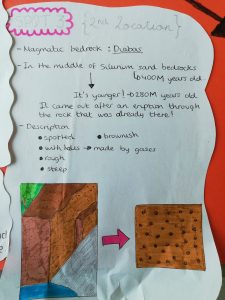 SPOT 3 {2nd Location}
- Magmatic bedrock: Diabas
- In the middle of Silurium sand bedrocks
↳ 400M years old
It's younger! ↳ 280M years old
It came out after an eruption through
the rock that was already there!
- Description
• spotted • brownish
• with holes → made by gases
• rough
• steep